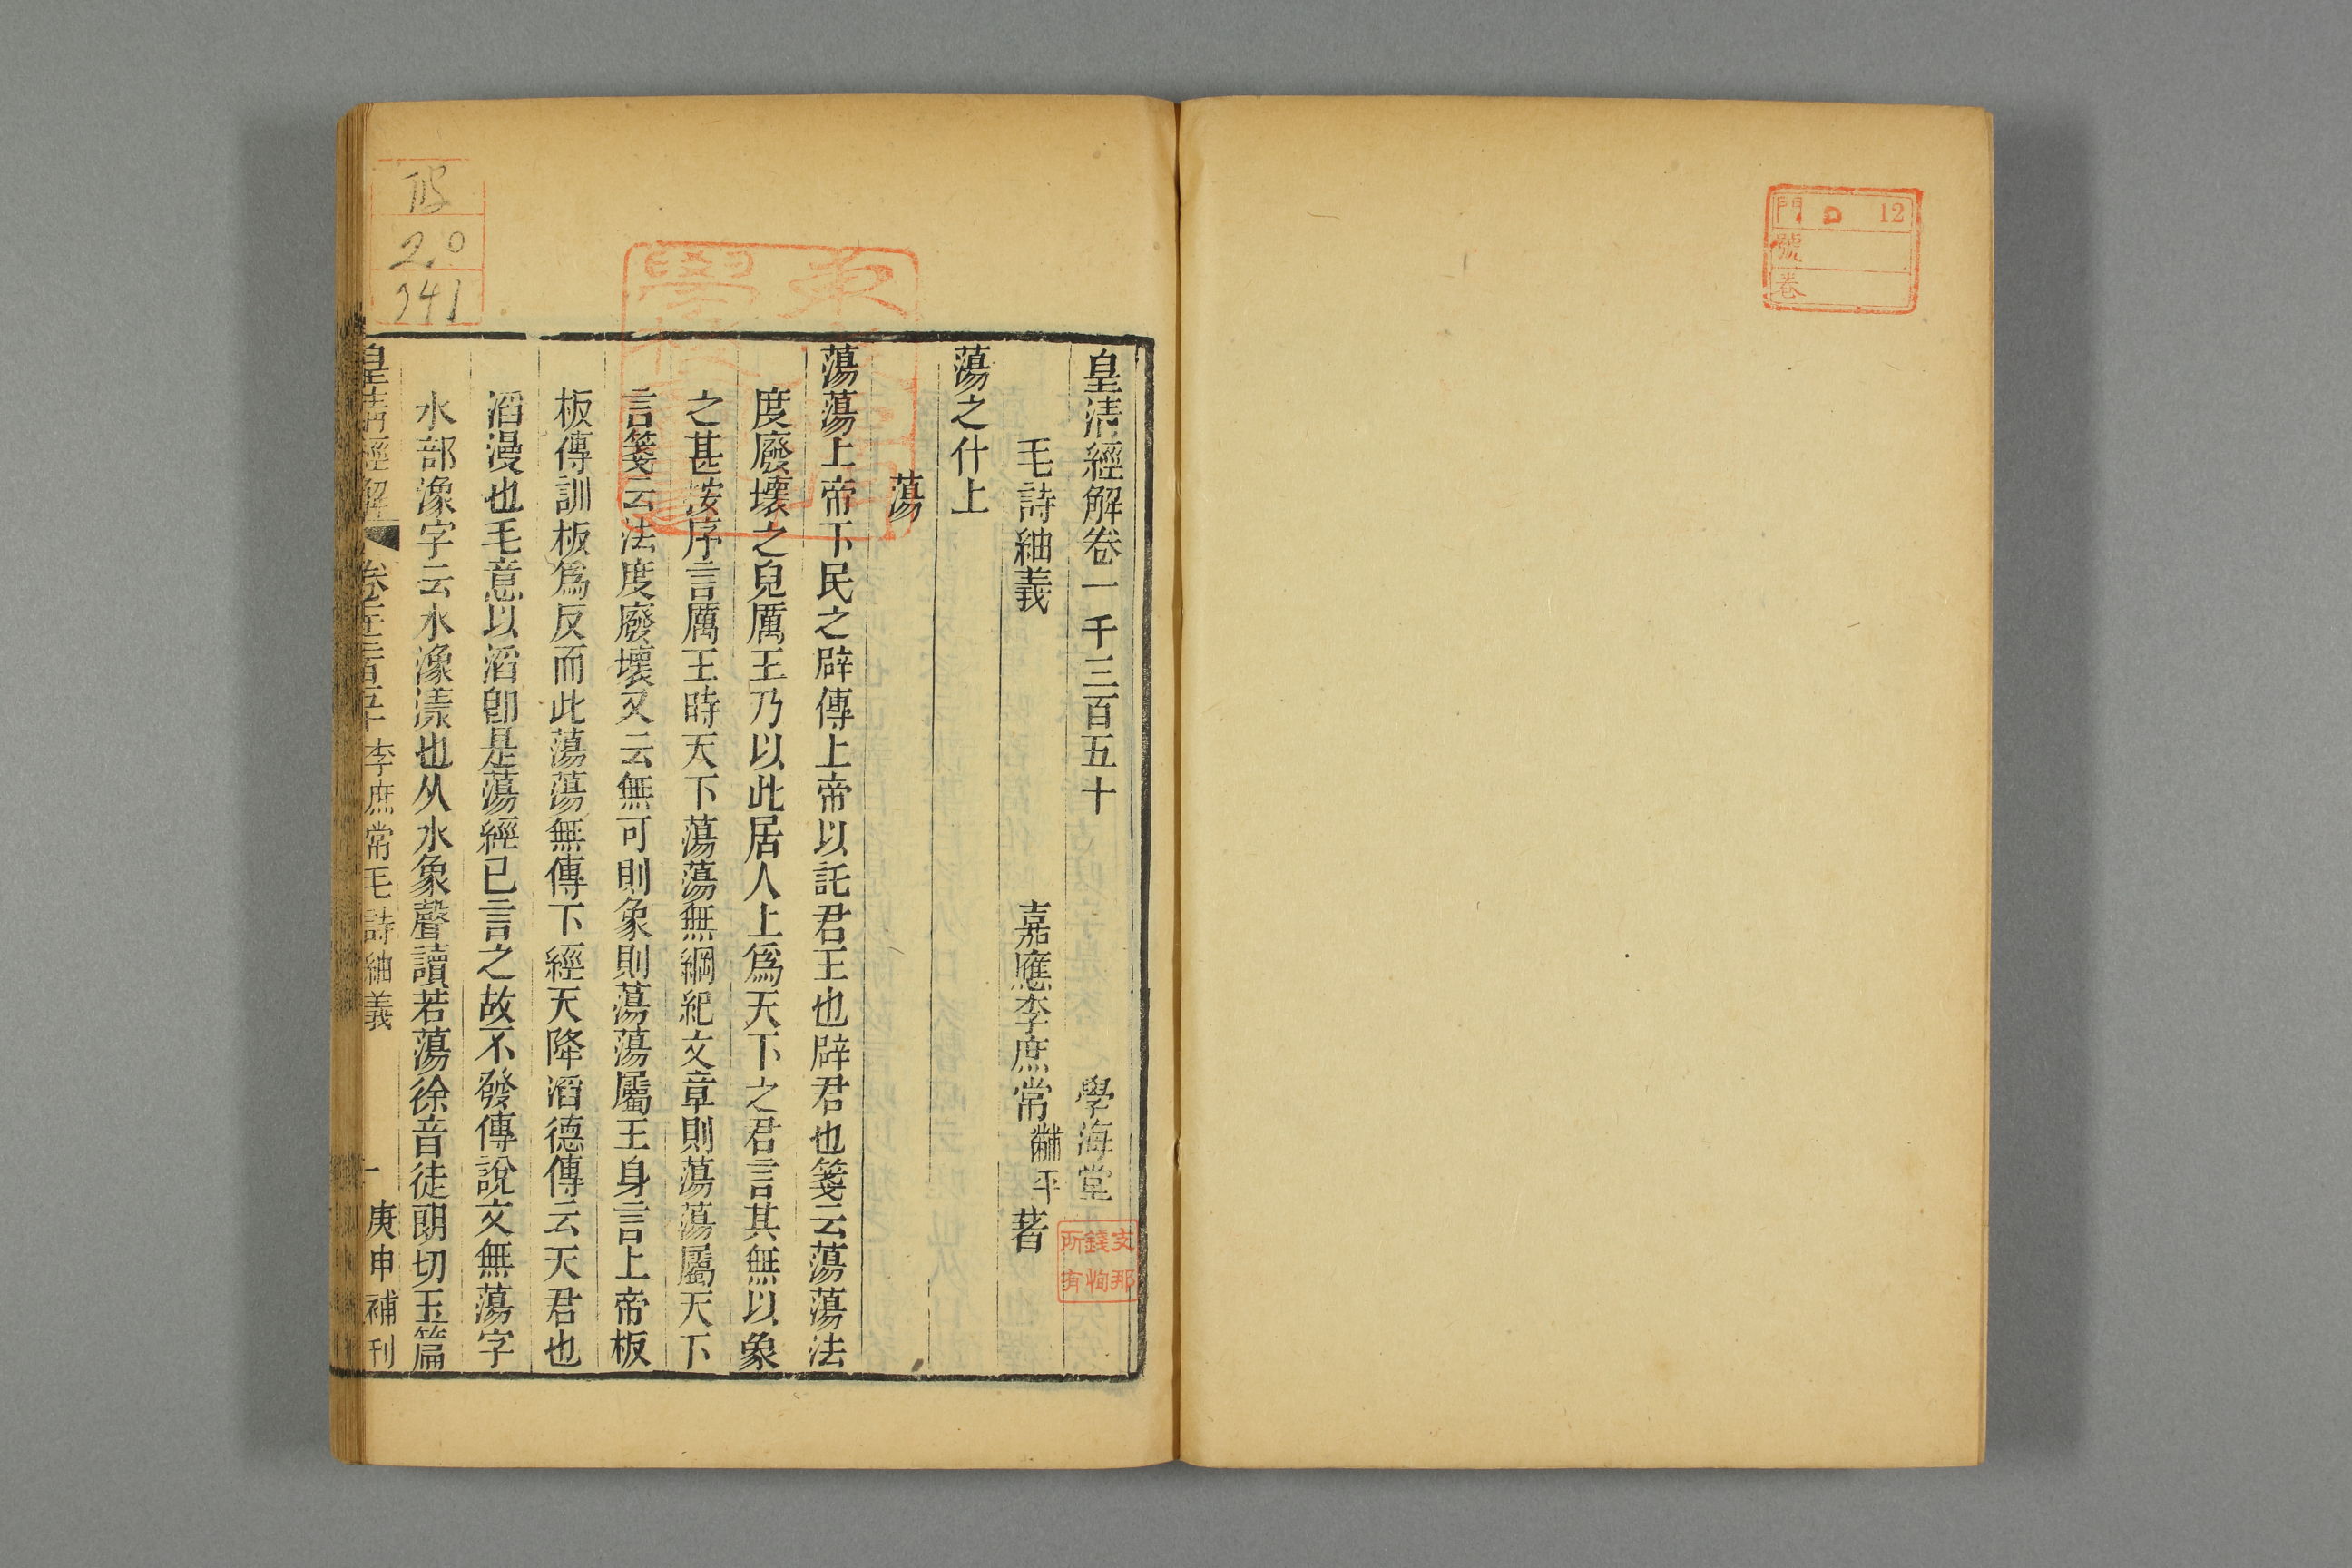 門 12
號
卷
皇清經解卷一千三百五十 學海堂
毛詩紬義 嘉應李庶常黼平著
蕩之什上
蕩
蕩蕩上帝下民之辟傳上帝以託君王也辟君也箋云蕩蕩法
度廢壞之皃厲王乃以此居人上爲天下之君言其無以象
之甚按序言厲王時天下蕩蕩無綱紀文章則蕩蕩屬天下
言箋云法度廢壞又云無可則象則蕩蕩屬王身言上帝板
板傳訓板爲反而此蕩蕩無傳下經天降滔德傳云天君也
滔漫也毛意以滔卽是蕩經已言之故不發傳說文無蕩字
水部潒字云水潒瀁也从水象聲讀若蕩徐音徒朗切玉篇
皇清經解 李庶常毛詩紬義 一 庚申補刊
支那
錢恂
所有
20